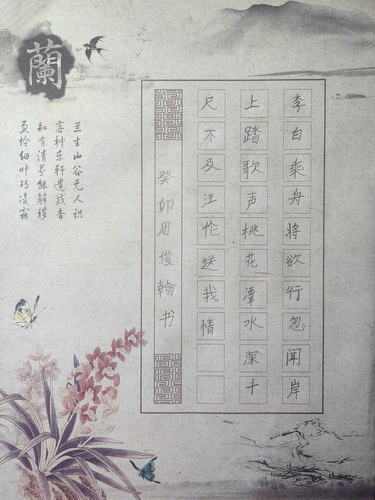 李白乘舟将欲行忽闻岸
上踏歌声桃花潭水深千
尺不及汪伦送我情
癸卯周俊翰书
蘭
兰生山谷无人识
客种东轩遗我香
知有清芬能解秽
更怜细叶巧凌霜